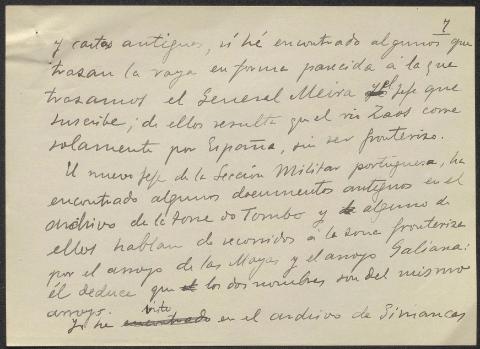 7
y cartas antiguas, sí hé encontrado algunos que
trazan la raya en forma parecida á la que
trazamos el General Meira y el Jefe que
suscribe; de ellos resulta que el río Zaos corre
solamente por España, sin ser fronterizo.
El nuevo Jefe de la Sección Militar portuguesa, ha
encontrado algunos documentos antiguos en el
archivo de la Torre do Tombo y alguno de
ellos hablan de recorridos á la zona fronteriza
por el arroyo de las Mayas y el arroyo Galiana:
él deduce que los dos nombres son del mismo
arroyo.
Yo he visto en el archivo de Simancas